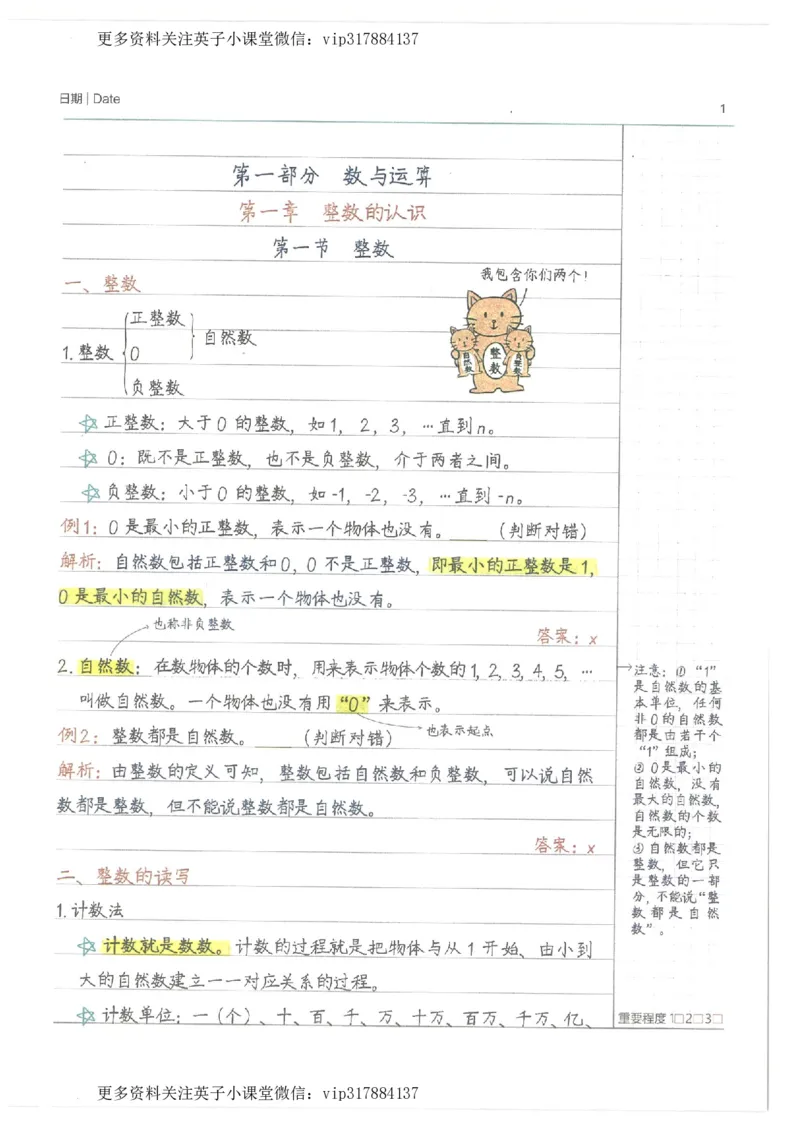 更多资料关注英子小课堂微信：vip317884137
日期 | Date
1
第一部分 数与运算
第一章 整数的认识
第一节 整数
我包含你们两个！
一、整数
正整数
自然数
1.整数 0
负整数
自然数
整数
负整数
☆ 正整数：大于0的整数，如1，2，3，…直到n。
☆ 0：既不是正整数，也不是负整数，介于两者之间。
☆ 负整数：小于0的整数，如-1，-2，-3，…直到-n。
例1：0是最小的正整数，表示一个物体也没有。____（判断对错）
解析：自然数包括正整数和0，0不是正整数，即最小的正整数是1，
0是最小的自然数，表示一个物体也没有。
也称非负整数
答案：x
2.自然数：在数物体的个数时，用来表示物体个数的1，2，3，4，5，…
叫做自然数。一个物体也没有用“0”来表示。
也表示起点
例2：整数都是自然数。____（判断对错）
解析：由整数的定义可知，整数包括自然数和负整数，可以说自然
数都是整数，但不能说整数都是自然数。
答案：x
二、整数的读写
1.计数法
☆ 计数就是数数。计数的过程就是把物体与从1开始、由小到
大的自然数建立一一对应关系的过程。
☆ 计数单位：一（个）、十、百、千、万、十万、百万、千万、亿、
注意：① “1”
是自然数的基
本单位，任何
非0的自然数
都是由若干个
“1”组成；
② 0是最小的
自然数，没有
最大的自然数，
自然数的个数
是无限的；
③ 自然数都是
整数，但它只
是整数的一部
分，不能说“整
数都是自然
数”。
重要程度 1□2□3□
更多资料关注英子小课堂微信：vip317884137